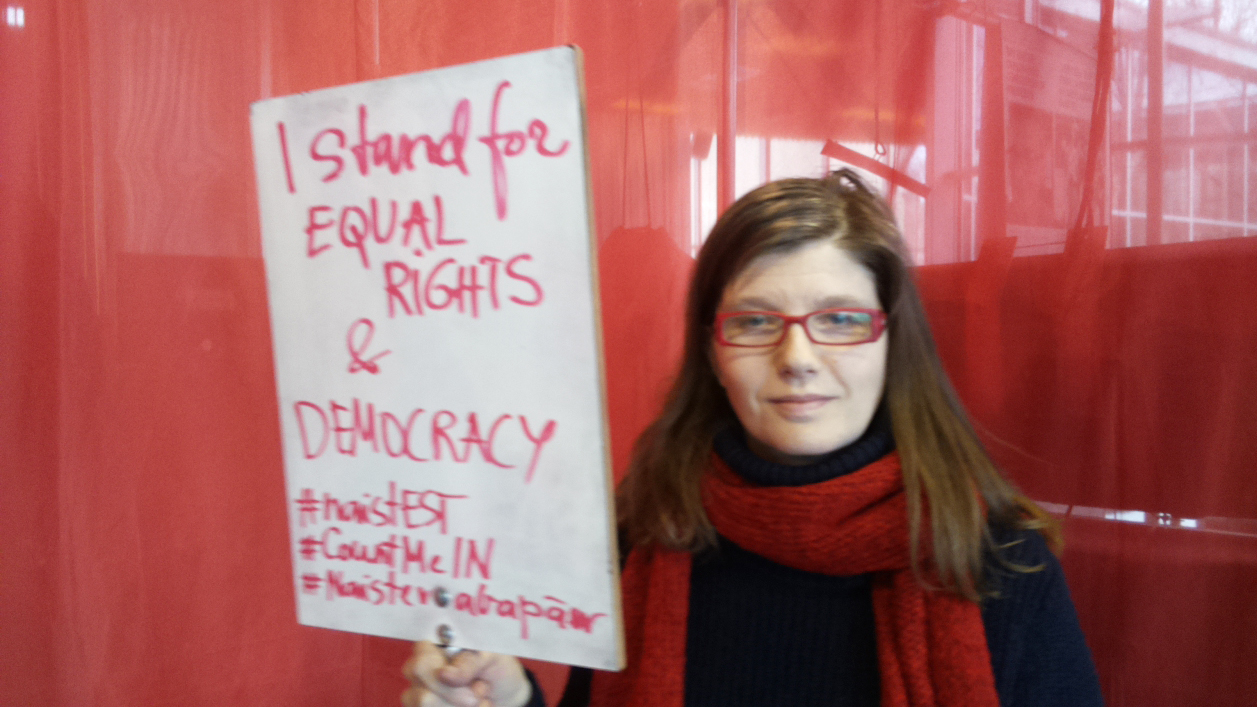 I stand for
EQUAL
RIGHTS
&
DEMOCRACY
#naistEST
#CountMeIN